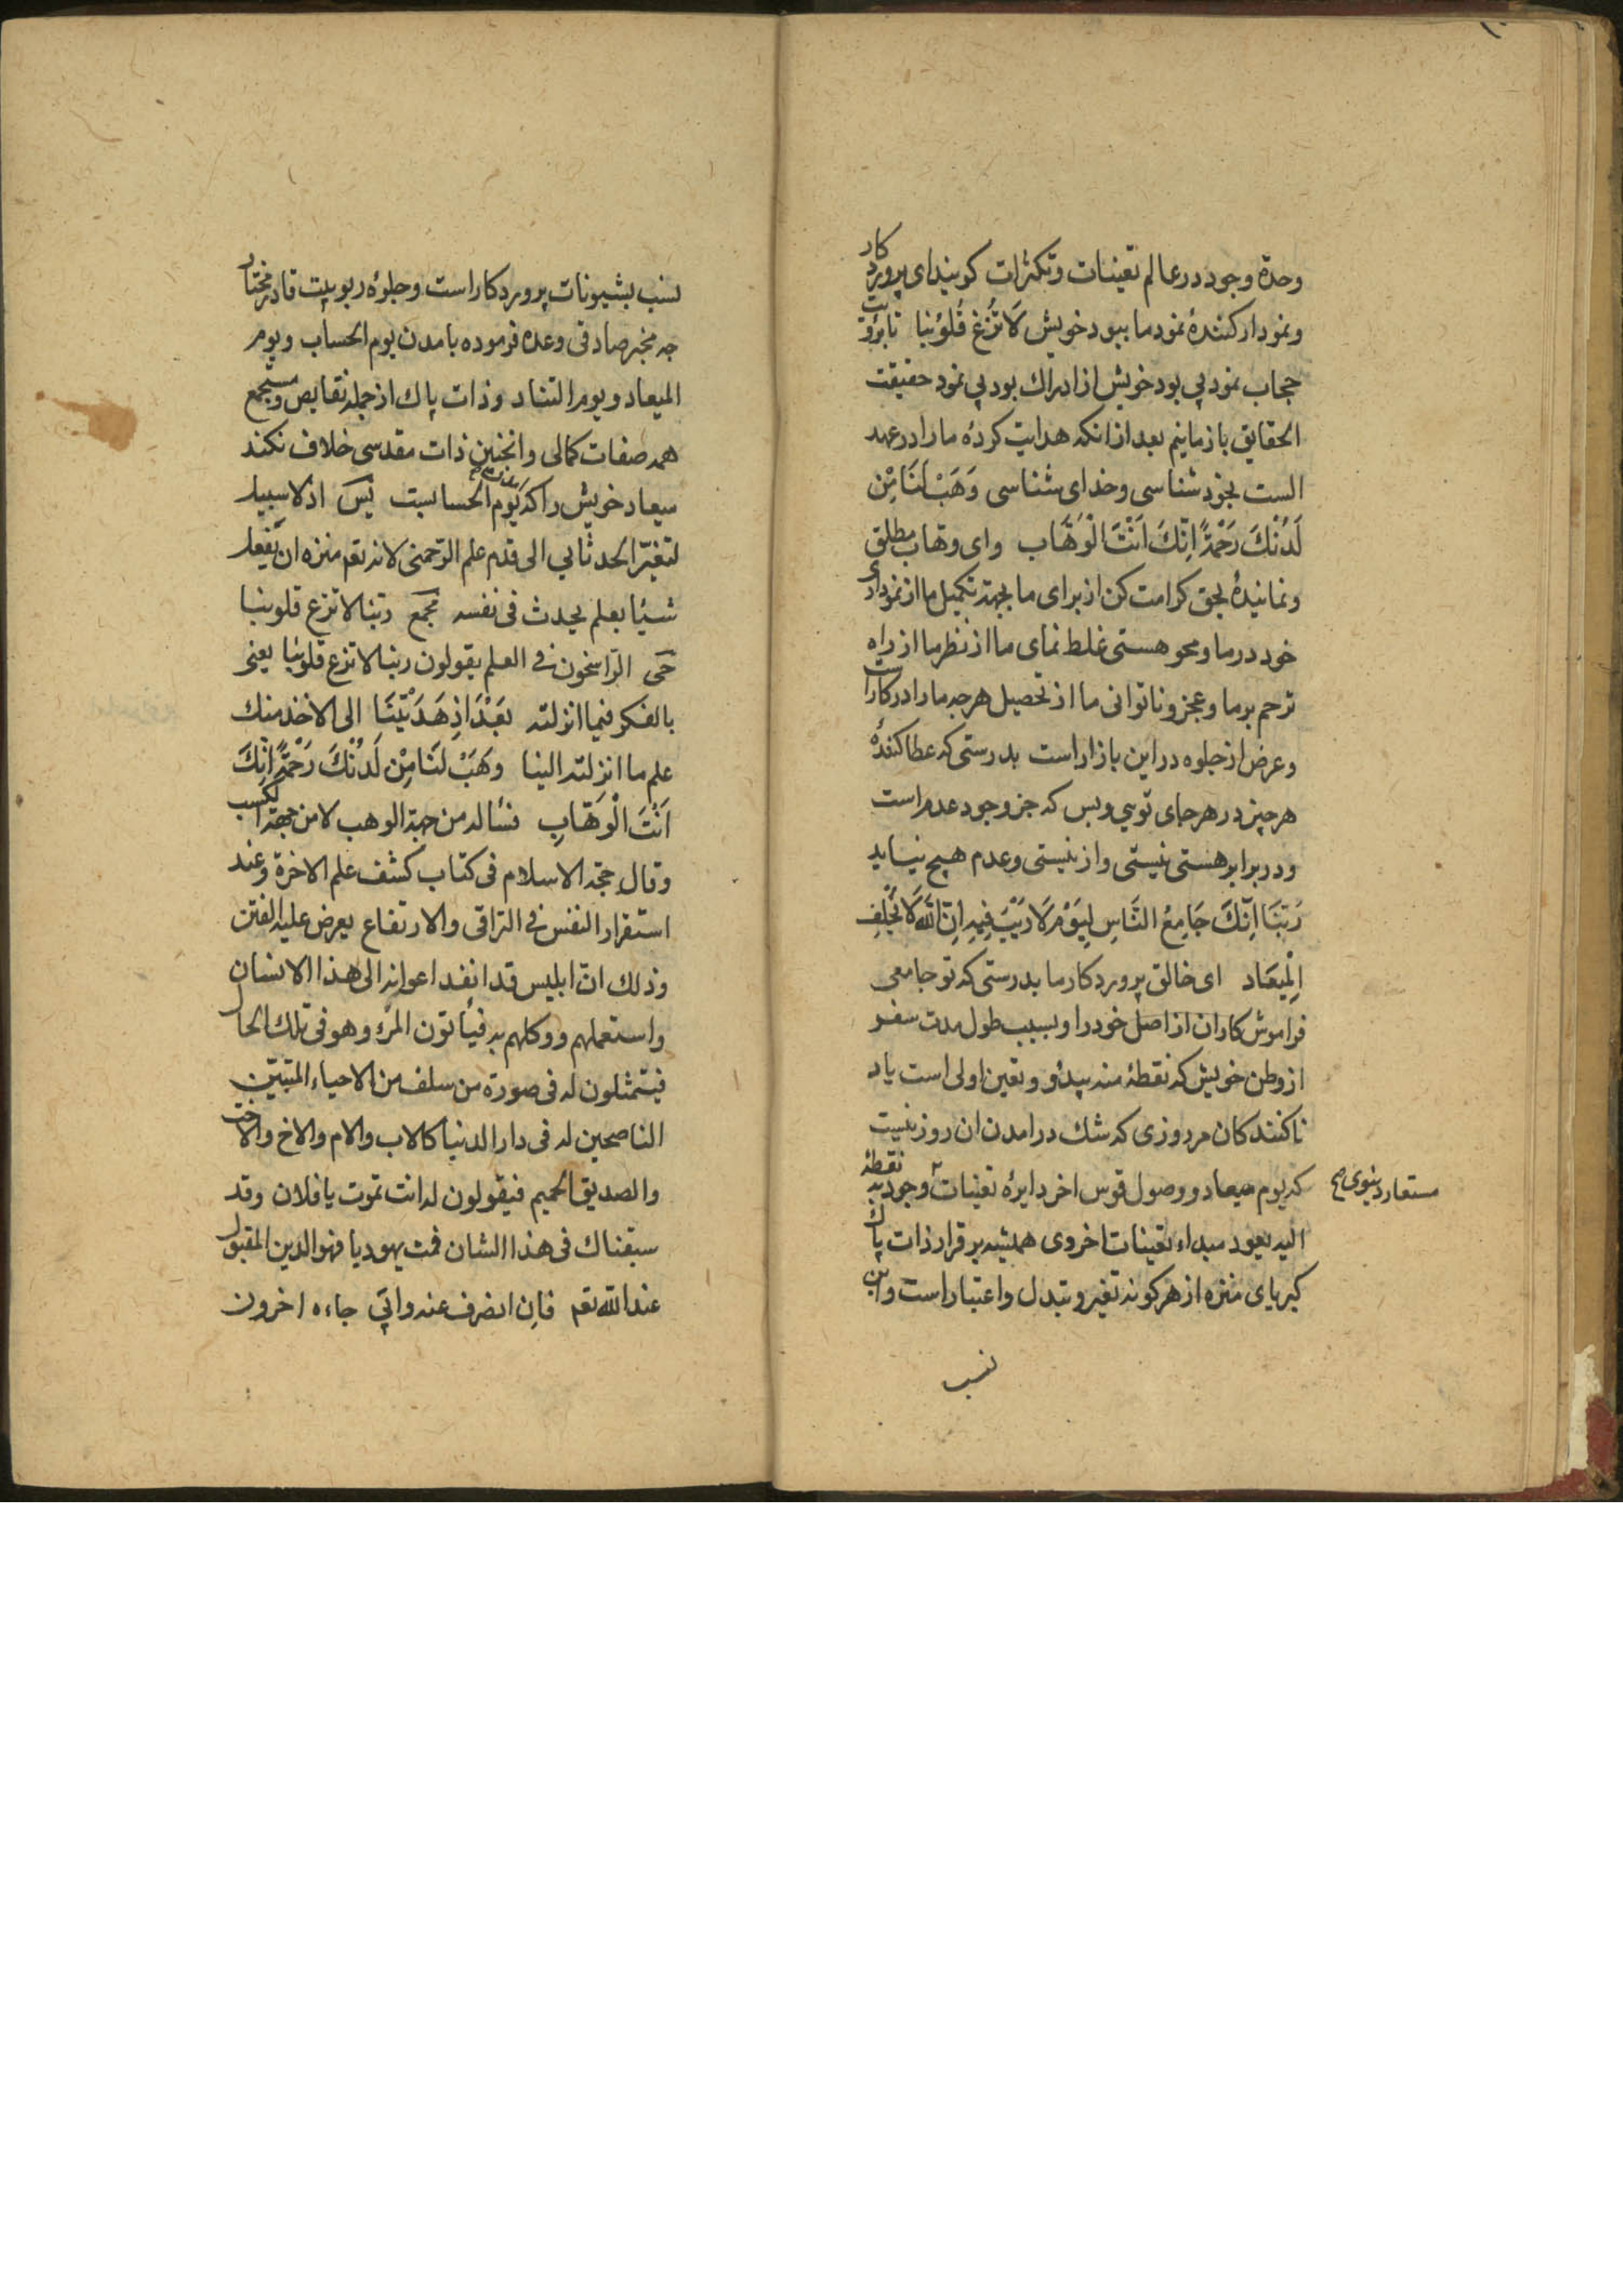 وحدة وجود در عالم تعینات و تکثرات کویند ای پروردکار
و نمودار کنندهٔ نمود ما ببود خویش لَا تُزِغ قُلُوبَنا تا برؤیت
حجاب نمود بی بود خویش از ادراك بود بی نمود حقیقت
الحقایق باز مانیم بعد ازانکه هدایت کردهٔ ما را در عهد
الست بخود شناسی و خدای شناسی وَهَبْ لَنَا مِنْ
لَدُنْكَ رَحْمَةً اِنَّكَ اَنْتَ الْوَهَّاب و ای وهّاب مطلق
و نمانیدهٔ بحق کرامت کن از برای ما بجهة تکمیل ما از نموداری
خود در ما و محو هستی غلط نمای ما از نظر ما از راه
ترحم بر ما و عجز و ناتوانی ما از تحصیل هرجه ما را در کار است
و عرض از جلوه در این بازار است بدرستی که عطا کنندهٔ
هرچیز در هرجای تویی و بس که جز وجود عدم است
و در برابر هستی نیستی و از نیستی و عدم هیچ نیاید
رَبَّنَا اِنَّكَ جَامِعُ النَّاسِ لِیَوْمٍ لَا رَیْبَ فِیهِ اِنَّ اللهَ لَا یُخْلِفُ
الْمِیعَاد ای خالق پروردکار ما بدرستی که تو جامعی
فراموش کاران از اصل خود را و بسبب طول مدت سفر
از وطن خویش که نقطهٔ منه یبدؤ و تعین اولی است یاد
ناکنندکان در روزی که شك در امدن ان روز نیست
که یوم میعاد و وصول قوس اخر دایرهٔ تعینات وجود به نقطهٔ
مستعار دنیوی صح
الیه یعود مبداء تعینات اخروی همیشه برقرار ذات پاك
کبریای منزه از هرکونه تغیر و تبدل و اعتبار است و این
نسب
نسب بشیونات پروردکار است و جلوهٔ ربوبیت قادر مختار
جه مخبر صادق وعده فرموده بامدن یوم الحساب و یوم
المیعاد و یوم التناد و ذات پاك از جمله نقایص و مستجمع
همه صفات کمالی و انچنین ذات مقدسی خلاف نکند
میعاد خویش را که یوم الحسابست پس اذ لا سبیل
لتغیّر الحدثانی الی قدم علم الرحمنی لانه تعم منزه ان یفعل
شیئا بعلم یحدث فی نفسه مجمع ربنا لا تزغ قلوبنا
حی الراسخون فی العلم یقولون ربنا لا تزغ قلوبنا یعنی
بالفکر فیما انزلته بَعْدَ اِذ هَدَیْتَنَا الی الاخذ منك
علم ما انزلته الینا وَهَبْ لَنَا مِنْ لَدُنْكَ رَحْمَةً اِنَّكَ
اَنْتَ الْوَهَّابِ نسأله من جهة الوهب لا من جهة الکسب
وقال حجة الاسلام فی کتاب کشف علم الاخرة وعند
استقرار النفس فی التراقی والارتفاع یعرض علیه الفتن
وذلك ان ابلیس قد انفذ اعوانه الی هذا الانسان
واستعملهم ووکلهم به فیأتون المرء وهو فی تلك الحال
فیتمثلون له فی صورة من سلف من الاحیاء المتبیّن
الناصحین له فی دار الدنیا کالاب والام والاخ والاخت
والصدیق الحمیم فیقولون له انت تموت یا فلان وقد
سبقناك فی هذا الشان فمت یهودیا فهو الدین المقبول
عند الله تعم فان انصرف عنه وابی جاءه اخرون